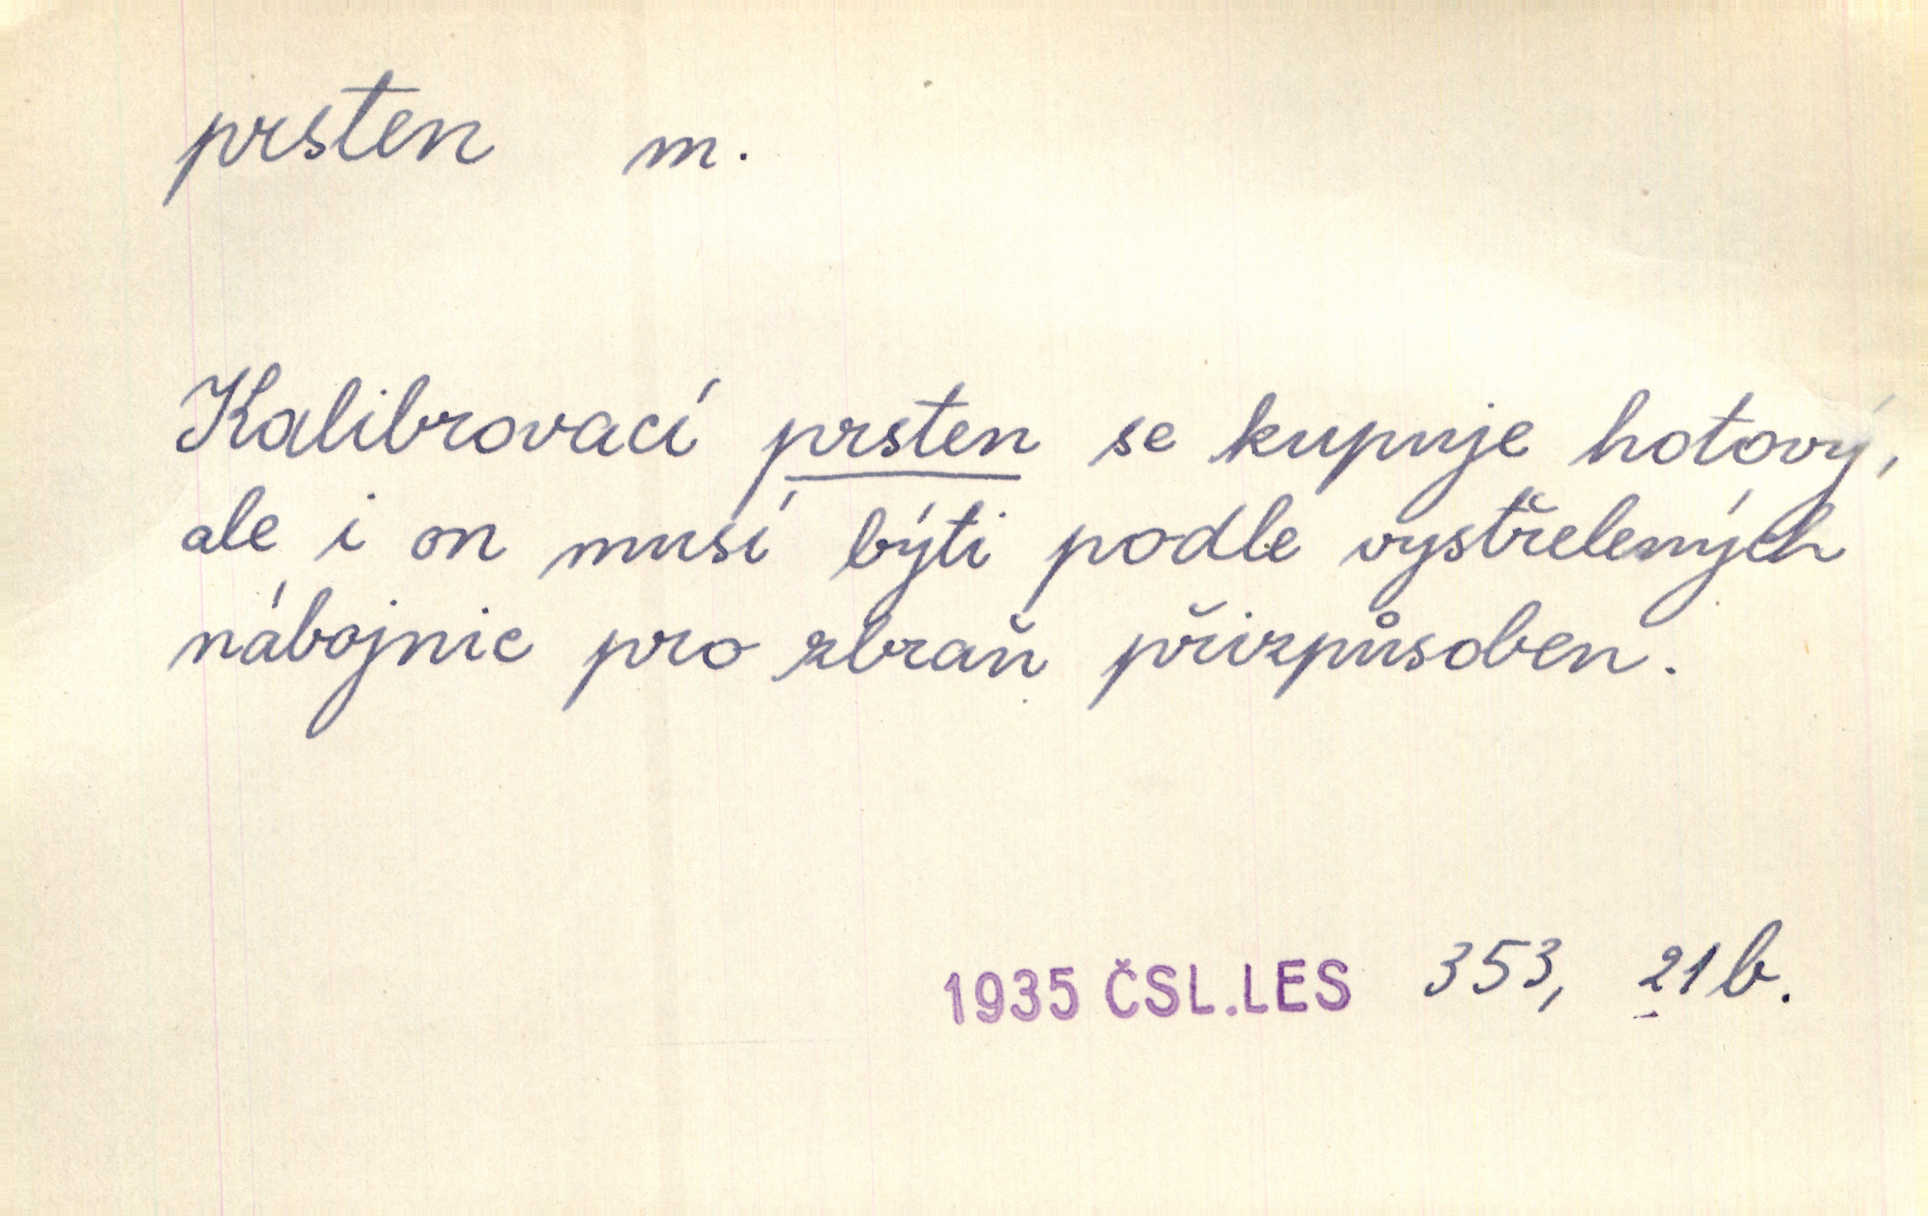 prsten m.
Kalibrovací prsten se kupuje hotový,
ale i on musí býti podle vystřelených
nábojnic pro zbraň přizpůsoben.
1935 ČSL.LES 353, 21b.